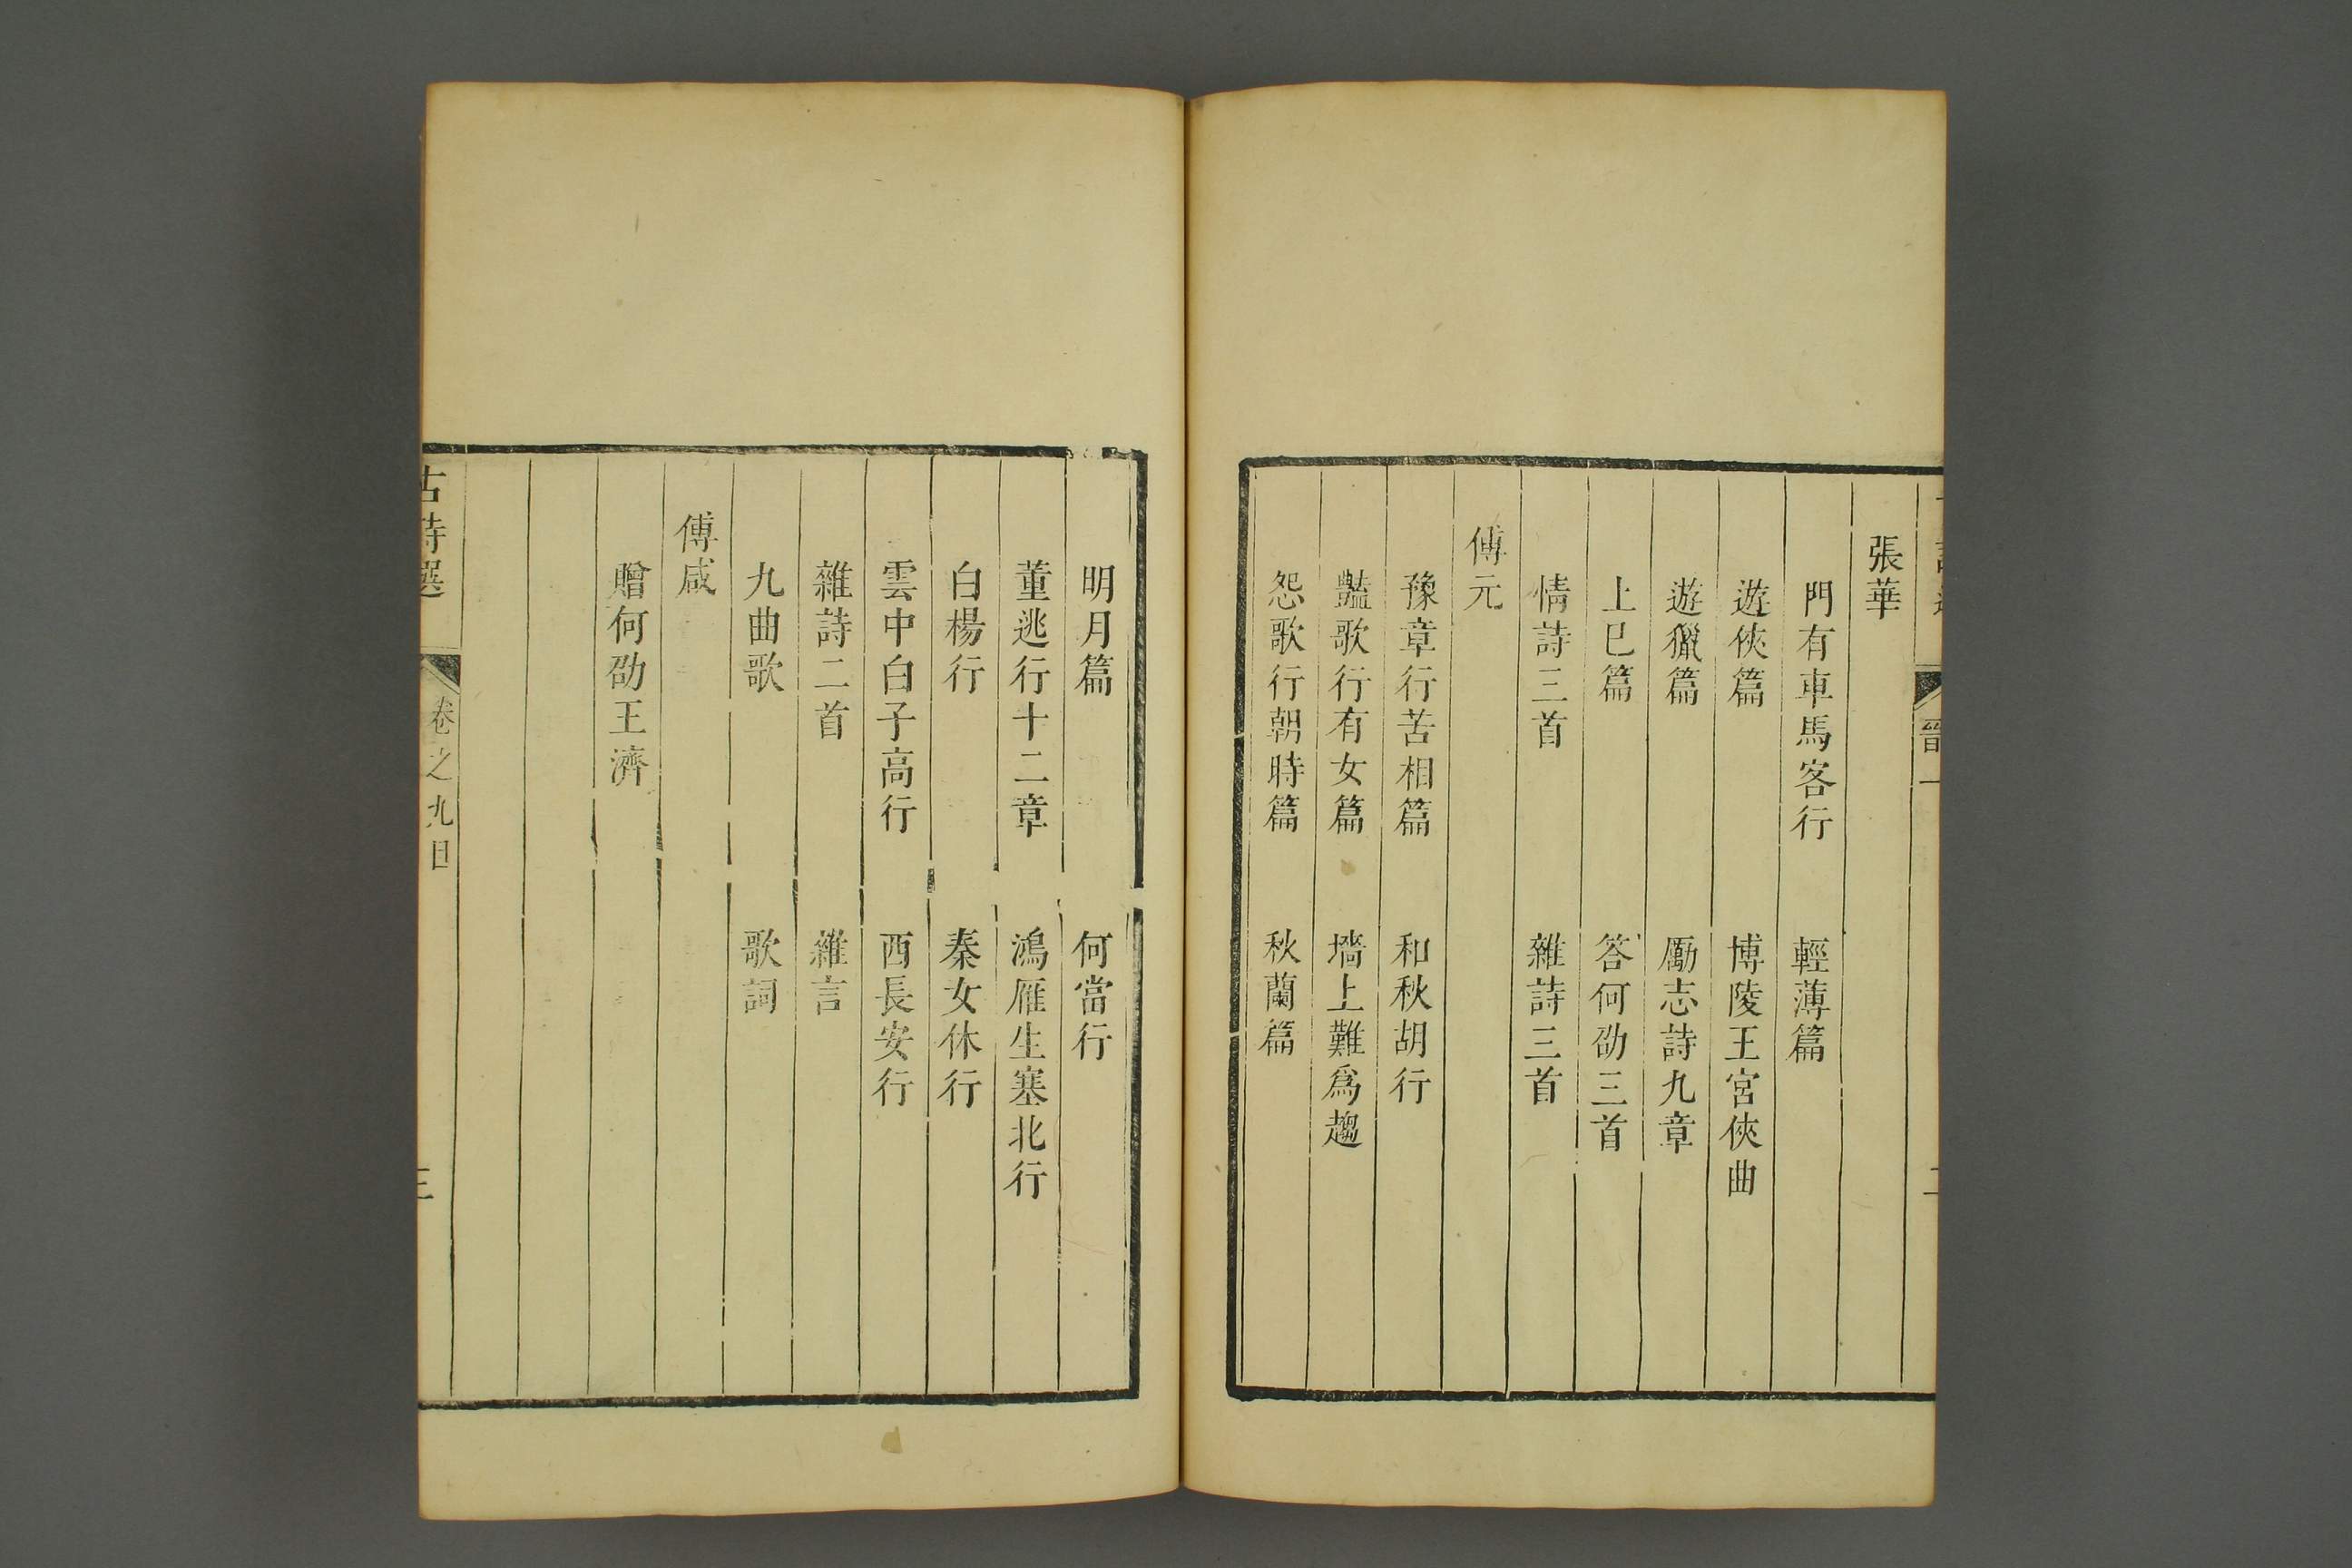 張華
門有車馬客行　輕薄篇
遊俠篇　博陵王宮俠曲
遊獵篇　勵志詩九章
上巳篇　答何劭三首
情詩三首　雜詩三首
傅元
豫章行苦相篇　和秋胡行
豔歌行有女篇　墻上難爲趨
怨歌行朝時篇　秋蘭篇
明月篇　何當行
董逃行十二章　鴻雁生塞北行
白楊行　秦女休行
雲中白子高行　西長安行
雜詩二首　雜言
九曲歌　歌詞
傅咸
贈何劭王濟
古詩選　卷之九目　三